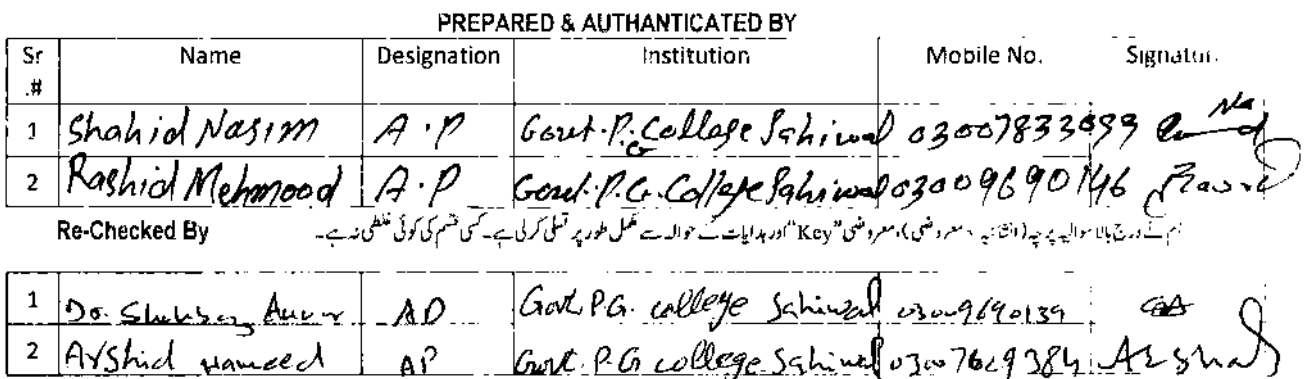 PREPARED & AUTHANTICATED BY
Sr .# Name Designation Institution Mobile No. Signatur.
1 Shahid Nasim A.P Govt.P.G College Sahiwal
2 Rashid Mehmood A.P Govt.P.G.College Sahiwal 03009690146
Re-Checked By ہم نے درج بالا سوالیہ پرچہ (انشائیہ، معروضی)، معروضی "Key" اور ہدایات کے حوالہ سے مکمل طور پر تسلی کر لی ہے۔ کسی قسم کی کوئی غلطی نہ ہے۔
1 Dr. AP Govt. P.G. college Sahiwal 03009690139
2 Arshid Hameed AP Govt. P.G college Sahiwal 03007629384 Arshad